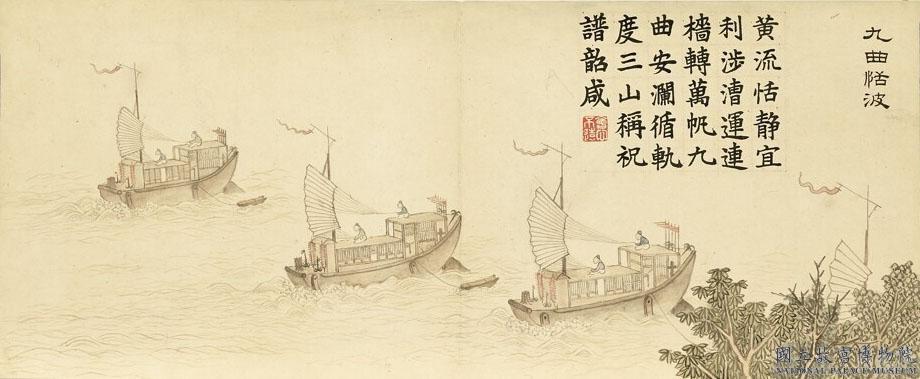 九曲恬波
黃流恬靜宜
利涉漕運連
檣轉萬帆九
曲安瀾循軌
度三山稱祝
譜韶咸
國立故宮博物院
NATIONAL PALACE MUSEUM